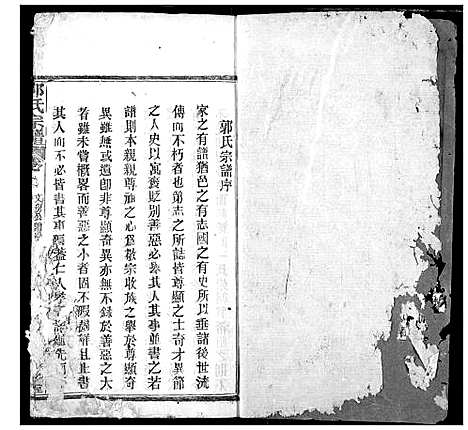 郭氏宗譜序
家之有譜猶邑之有志國之有史所以垂諸後世流
傳而不朽者也第志之所誌皆尊顯之士奇才異節
之人史以寓褒貶別善惡必叅其人其事並書之若
譜則本親親尊祖之心爲敬宗收族之舉於尊顯奇
異雖無或遺卽非尊顯奇異亦於善惡之大
者雖未嘗概畧而善惡之小者固不暇叅詳且止書
其人而不必皆書其事
氏宗譜